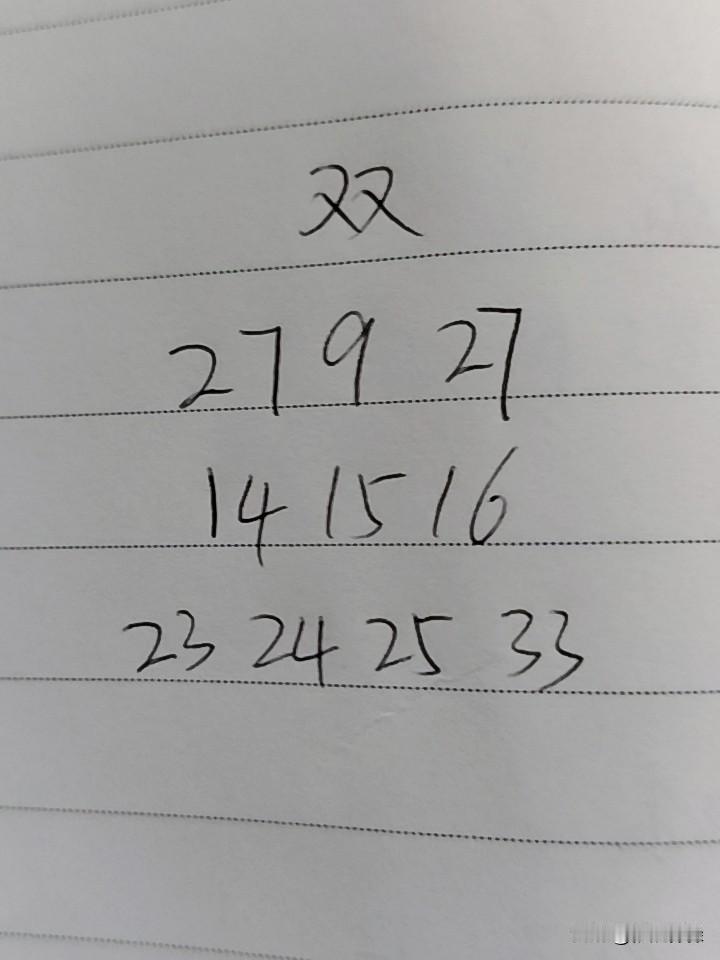 双
27 9 27
14 15 16
23 24 25 33